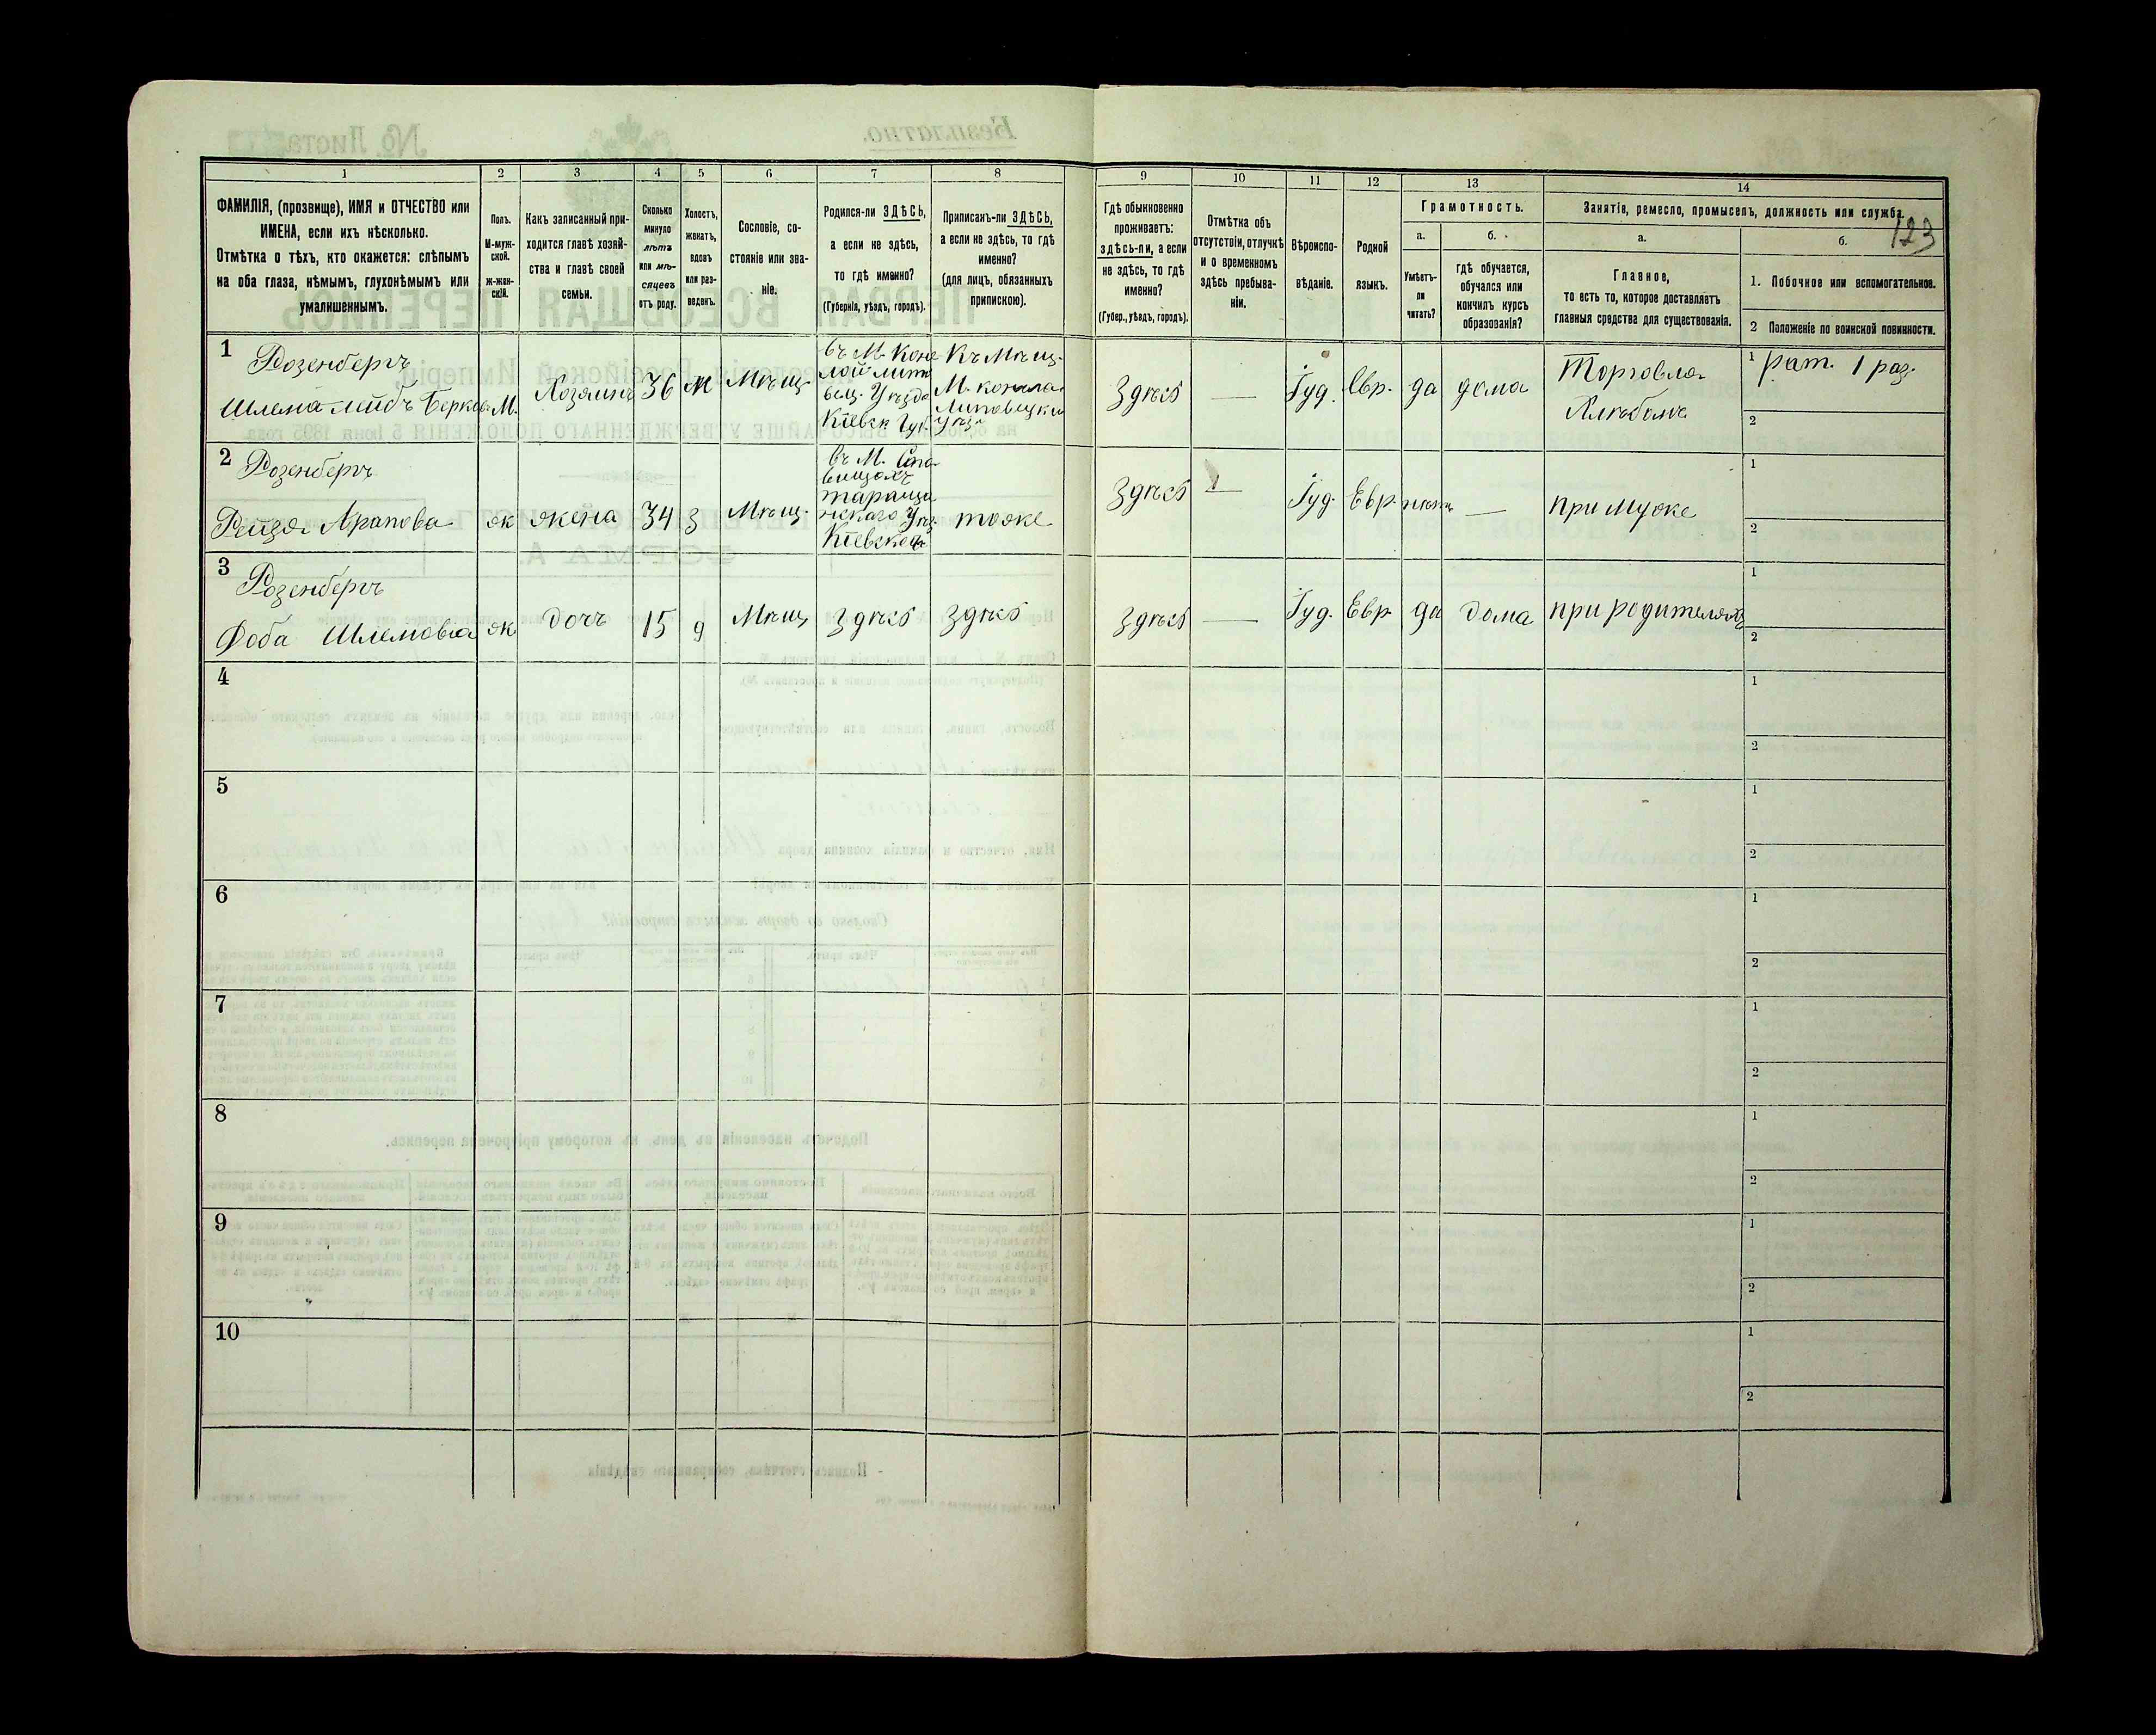 1 2 3 4 5 6 7 8 9 10 11 12 13 14
ФАМИЛІЯ, (прозвище), ИМЯ и ОТЧЕСТВО или
ИМЕНА, если ихъ нѣсколько.
Отмѣтка о тѣхъ, кто окажется: слѣпымъ
на оба глаза, нѣмымъ, глухонѣмымъ или
умалишеннымъ.
Полъ.
М-муж-
ской.
Ж-жен-
скій.
Какъ записанный при-
ходится главѣ хозяй-
ства и главѣ своей
семьи.
Сколько
минуло
лѣтъ
или мѣ-
сяцевъ
отъ роду.
Холостъ,
женатъ,
вдовъ
или раз-
веденъ.
Сословіе, со-
стояніе или зва-
ніе.
Родился-ли ЗДѢСЬ,
а если не здѣсь,
то гдѣ именно?
(Губернія, уѣздъ, городъ).
Приписанъ-ли ЗДѢСЬ,
а если не здѣсь, то гдѣ
именно?
(для лицъ, обязанныхъ
припискою).
Гдѣ обыкновенно
проживаетъ:
здѣсь-ли, а если
не здѣсь, то гдѣ
именно?
(Губер., уѣздъ, городъ).
Отмѣтка объ
отсутствіи, отлучкѣ
и о временномъ
здѣсь пребыва-
ніи.
Вѣроиспо-
вѣданіе.
Родной
языкъ.
Грамотность.
а.
Умѣетъ-
ли
читать?
б.
гдѣ обучается,
обучался или
кончилъ курсъ
образованія?
Занятія, ремесло, промыселъ, должность или служба.
123
а.
Главное,
то есть то, которое доставляетъ
главныя средства для существованія.
б.
1. Побочное или вспомогательное.
2 Положеніе по воинской повинности.
1
Розенбергъ
Шлема Лейбъ Берков
М.
Хозяинъ
36
Ж
Мѣщ.
въ М. Коне
лой Липо
вец. Уѣзда
Кіевск. Губ.
Къ Мѣщ.
М. конела
Липовецки
Уѣз
Здѣсь
—
Іуд.
Евр.
да
дома
Торговля
Хлѣбомъ
1 рат. 1 раз.
2
2
Розенбергъ
Рейзя Арапова
ж
жена
34
З
Мѣщ.
въ М. Ста
вищахъ
таращи
нскаго Уѣз.
Кіевской
тоже
Здѣсь
—
Іуд.
Евр.
нѣтъ
—
при мужѣ
1
2
3
Розенбергъ
Доба Шлемовна
ж
дочь
15
д
Мѣщ
Здѣсь
здѣсь
здѣсь
—
Іуд.
Евр
да
дома
при родителяхъ
1
2
4
1
2
5
1
2
6
1
2
7
1
2
8
1
2
9
1
2
10
1
2